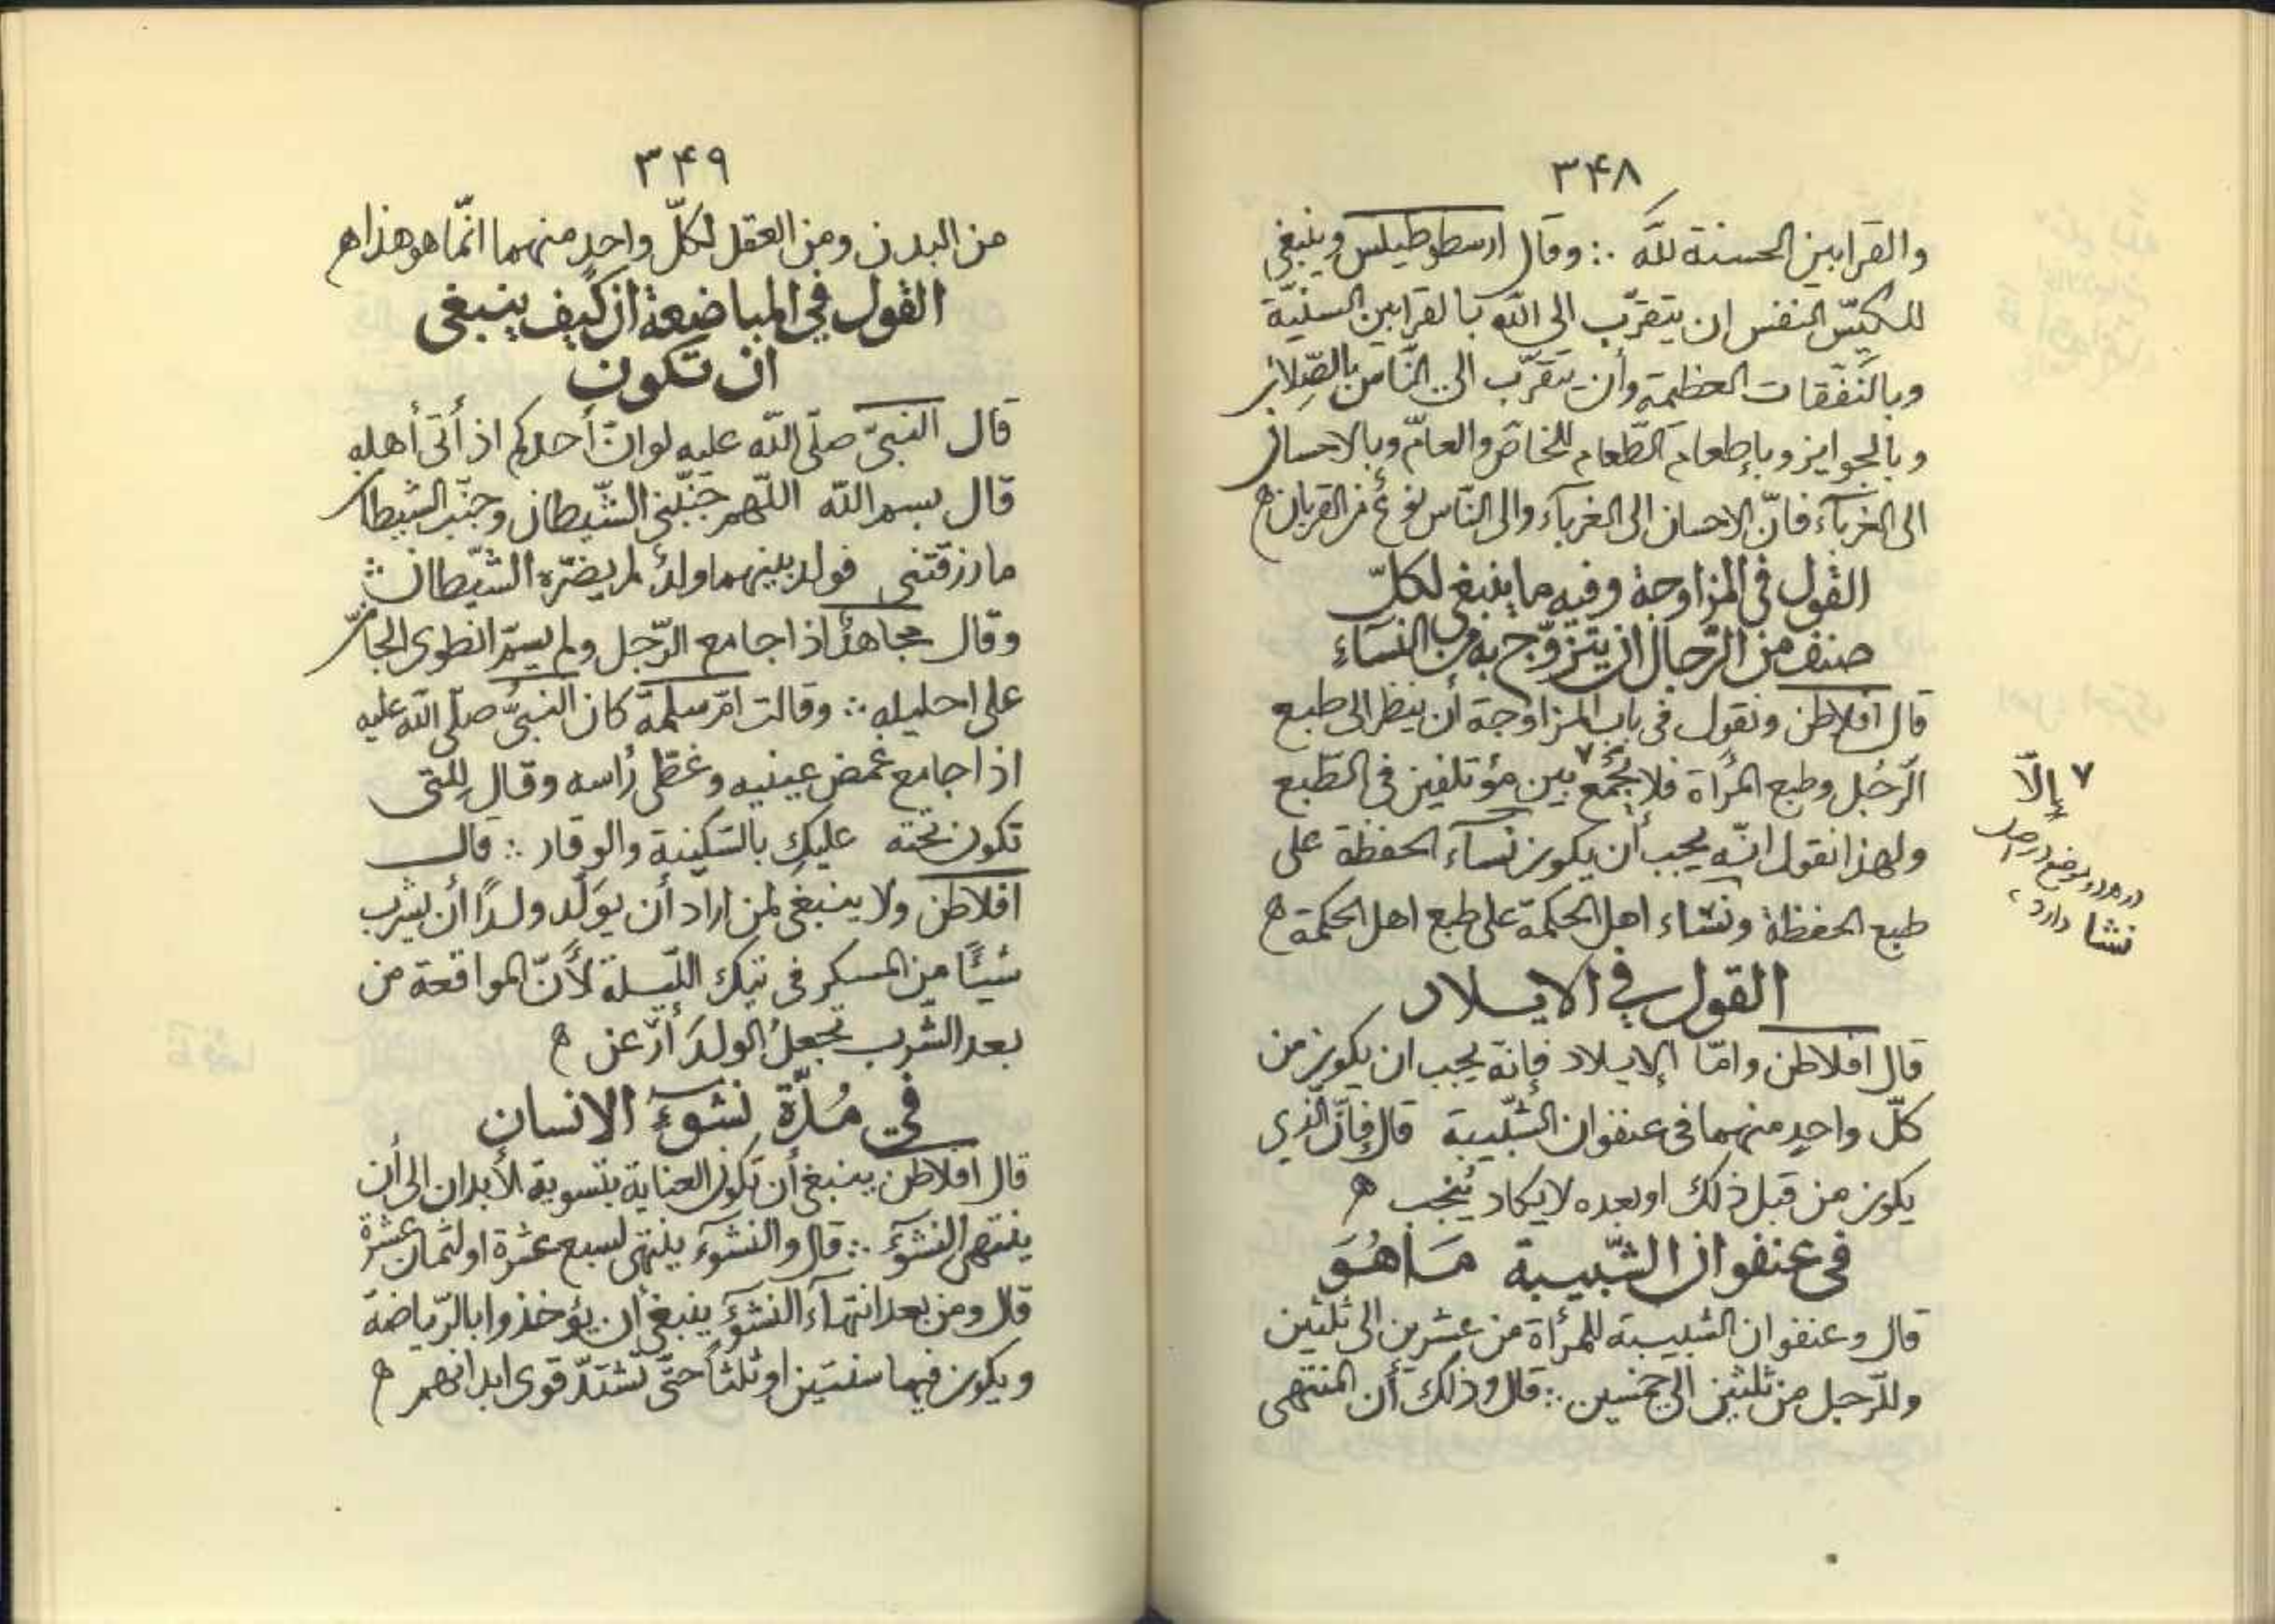 ٣۴٨
والقرابين الحسنة للّه ∴ وقال ارسطوطيلس وينبغي
للكبيّر النفس ان يتقرّب الى اللّه بالقرابين السنيّة
وبالنّفقات العظيمة وأن يتقرّب الى النّاس بالصِّلات
وبالجوايز وبإطعام الطّعام للخاصّ والعامّ وبالاحسان
الى الغربآء فانّ الاحسان الى الغربآء والى النّاس نوعٌ من القربان ه
القول فى المزاوجة وفيه ما ينبغي لكلّ
صنف من الرّجال ان يتزوّج به من النسآءِ
قال افلاطن ونقول فى باب المزاوجة أن ينظر الى طبع
الرّجُل وطبع المرأة فلا يُجْمَع ٧ بين مؤتلفين فى الطّبع
ولهذا نقول انّه يجب أن يكون نسآء الحفظة على
طبع الحفظة ونشاء اهل الحكمة على طبع اهل الحكمة ه
القول في الايلاد
قال افلاطن وامّا الايلاد فإنّه يجب ان يكون من
كلّ واحدٍ منهما فى عنفوان الشّبيبة قال فإنّ الّذي
يكون من قبل ذلك او بعده لا يكاد يُنجب ه
فى عنفوان الشّبيبة مَا هُوَ
قال وعنفوان الشبيبة للمرأة من عشرين الى ثلثين
وللرّجل من ثلثين الى خمسين ∴ قال وذلك أن المنتهى
٧ إلّا
در هر دو موضع در اصل
نشا دارد،
٣۴٩
من البدن ومن العقل لكلّ واحدٍ منهما انّما هو هذا ه
القول في المباضعة ان كيف ينبغي
ان تكون
قال النبىّ صلّى اللّه عليه لو انّ أحدكم اذ أتى أهله
قال بسم اللّه اللّهم جنّبنى الشّيطان وجنّب الشيطان
ما رزقتنى فولد بينهما ولدٌ لم يضرّه الشّيطان ∴
وقال مجاهدٌ اذا جامع الرّجل ولم يسمّ انطوى الجانّ
على احليله ∴ وقالت امّ سلمة كان النبىُّ صلّى اللّه عليه
اذا جامع غمض عينيه وغطّى رأسه وقال للتى
تكون تحته عليكِ بالسّكينة والوقار ∴ قال
افلاطن ولا ينبغي لمن اراد أن يوَلّد ولدًا أن يشرب
شيئًا من المسكر فى تيك اللّيلة لأنّ المواقعة من
بعد الشّرب تجعلُ الولدَ أرْعن ه
في مُدّة نشوءِ الانسان
قال افلاطن ينبغى أن تكون العناية بتسوية الأبدان الى أن
ينتهى النشؤ ∴ قال والنشوء ينتهى لسبع عشرة او لثمان عشرة
قال ومن بعد انتهآء النشوء ينبغى أن يؤخذوا بالرّياضة
ويكون فيها سنتين او ثلثاً حتّى تشتدّ قوى ابدانهم ه